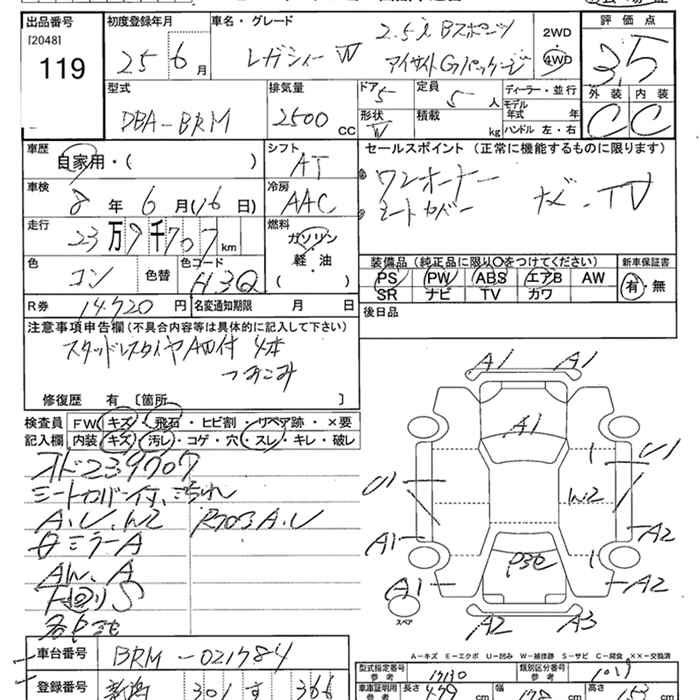 出品番号
[2048]
119
初度登録年月
25 6月
車名・グレード
レガシィー W
2.5i Bスポーツ
アイサイトGパッケージ
2WD
4WD
評価点
3.5
外装 内装
C C
型式
DBA-BRM
排気量
2500 CC
ドア 5
形状 W
定員 5 人
積載 kg
ディーラー・並行
モデル年式 年
ハンドル 左・右
車歴
自家用・( )
シフト
AT
車検
8年 6月(16日)
冷房
AAC
走行
23万9千707km
燃料
ガソリン
軽・油
( )
色
コン
色替
色コード
H3Q
R券 14,720円
名変通知期限 月 日
セールスポイント (正常に機能するものに限ります)
ワンオーナー
シートカバー
ナビ・TV
装備品 (純正品に限り○をつけてください)
PS PW ABS エアB AW
SR ナビ TV カワ
新車保証書
有・無
後日品
注意事項申告欄(不具合内容等は具体的に記入して下さい)
スタッドレスタイヤAW付 4本
つみこみ
修復歴 有 〔箇所 〕
検査員記入欄
FW キズ・飛石・ヒビ割・リペア跡・×要
内装 キズ・汚レ・コゲ・穴・スレ・キレ・破レ
オド239707
シートカバー付
A.U.W2
ミラーA
AW.A
下回りS
A1 A1
A1
U1 U1
W2
A1 A2
A1 A2
A2 A3
スペア
A-キズ E-エクボ U-凹み W-補修跡 S-サビ C-腐食 XX-交換済
車台番号
BRM-021784
登録番号
新潟 301 す 366
型式指定番号 参考
17130
類別区分番号 参考
車庫証明用 参考
長さ 4.79 cm
幅 178 cm
高さ 153 cm